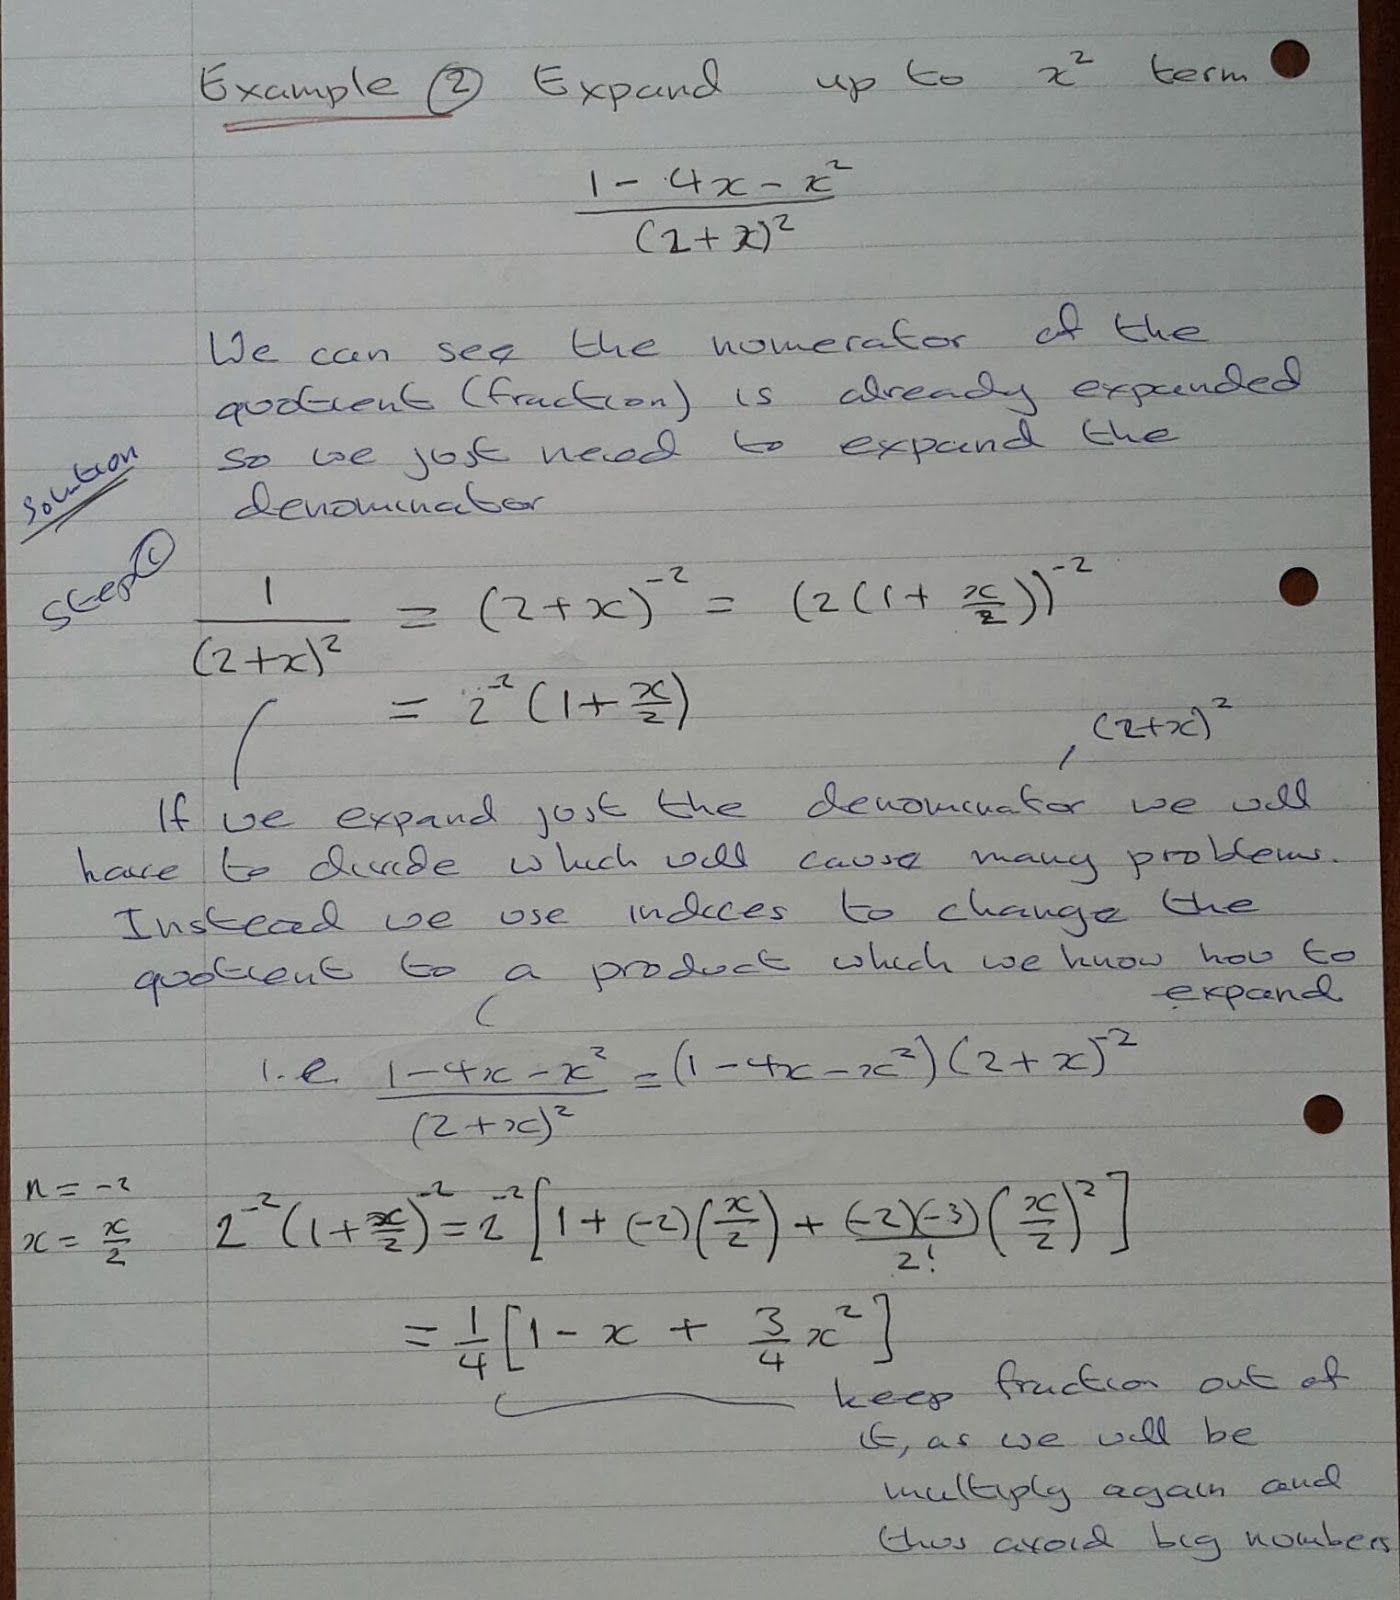 Example ② Expand up to x² term
1 - 4x - x²
(2+x)²
We can see the nomerator of the
quotient (fraction) is already expanded
so we just need to expand the
denominator
Solution
Step ①
1/(2+x)² = (2+x)⁻² = (2(1+x/2))⁻²
= 2⁻²(1+x/2)
(2+x)²
If we expand just the denominator we will
have to divide which will cause many problems.
Instead we use indices to change the
quotient to a product which we know how to
expand
i.e. (1-4x-x²)/(2+x)² = (1-4x-x²)(2+x)⁻²
n = -2
x = x/2
2⁻²(1+x/2)⁻² = 2⁻²[1+(-2)(x/2)+(-2)(-3)/2!(x/2)²]
= 1/4[1-x+3/4x²]
keep fraction out of
it, as we will be
multiply again and
thus avoid big numbers